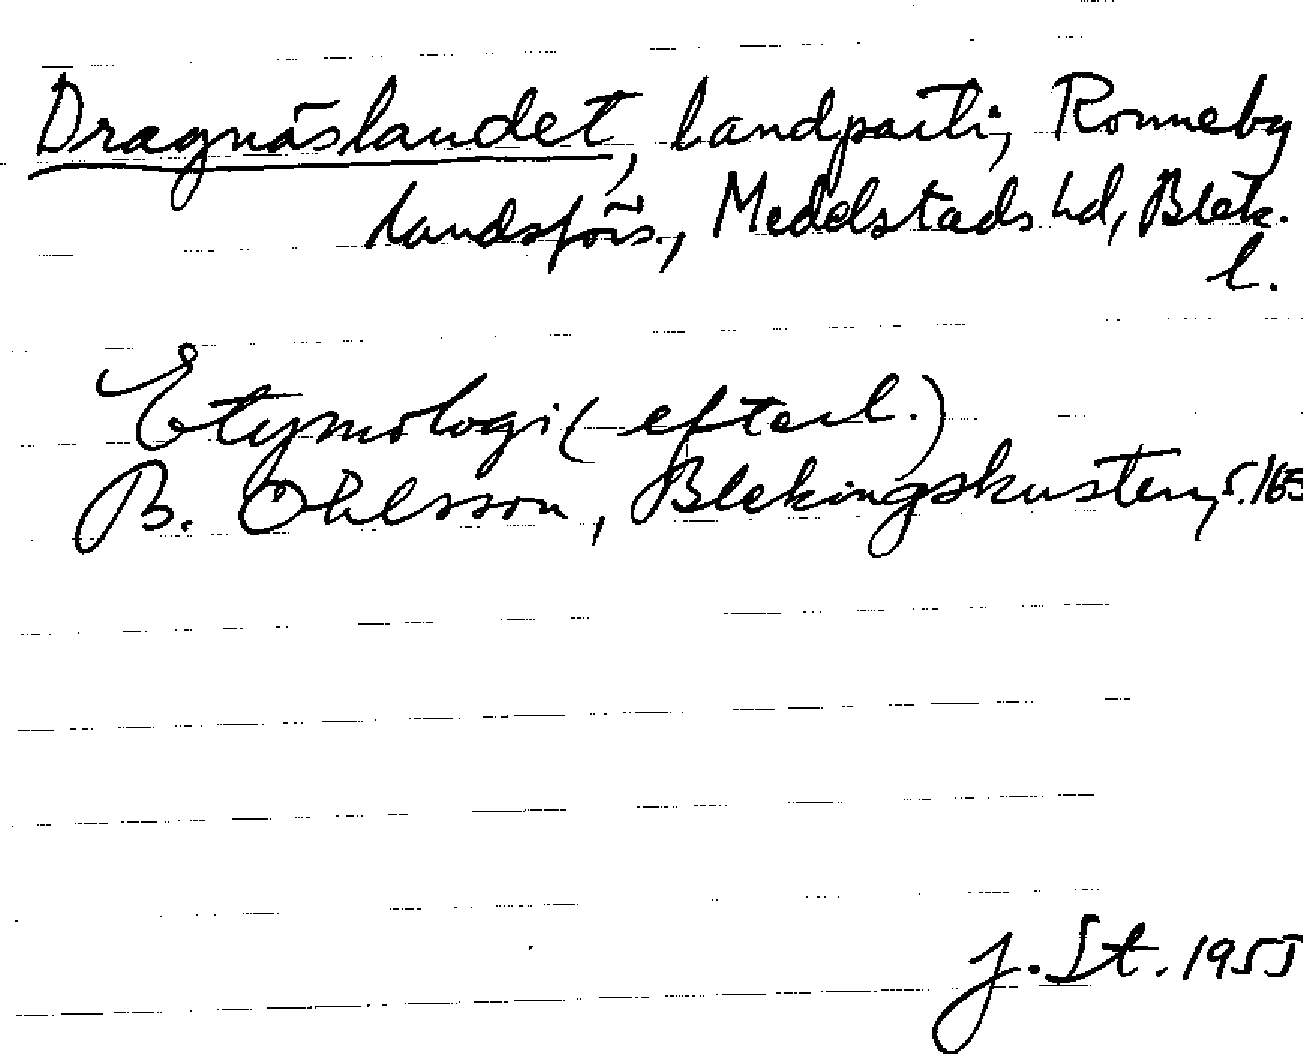 Dragnäslandet, landparti, Ronneby
landsförs., Medelstads hd, Blek.
l.
Etymologi (efterl.)
B. Ohlsson, Blekingskusten, s. 165
J. St. 1955